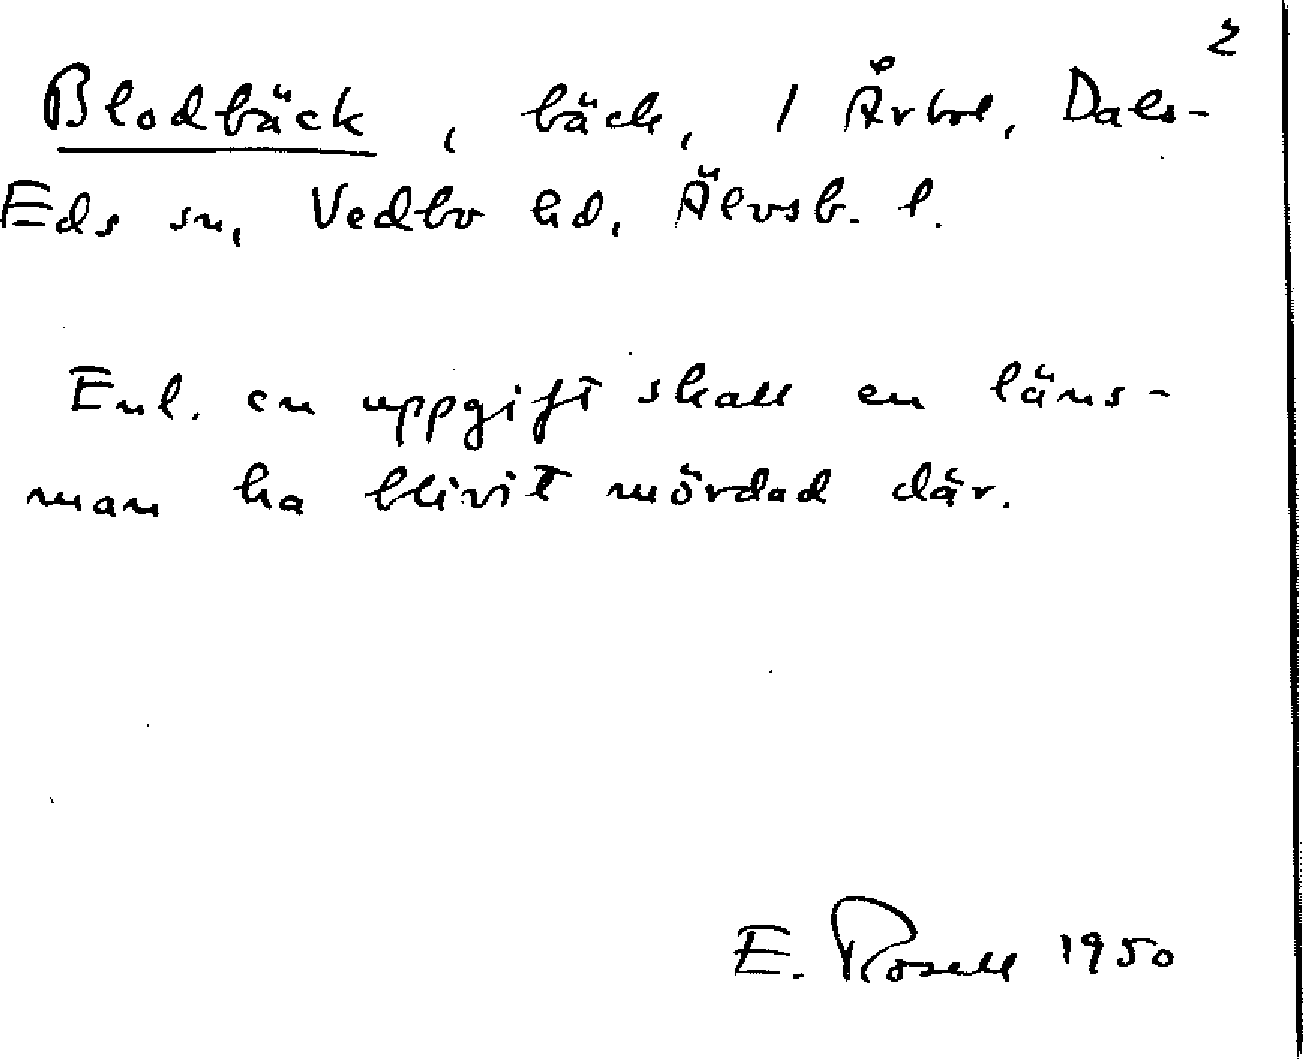 2
Blodbäck, bäck, 1 Årbol, Dals-
Eds sn, Vedbo hd, Älvsb. l.
Enl. en uppgift skall en läns-
man ha blivit mördad där.
E. Rosell 1950